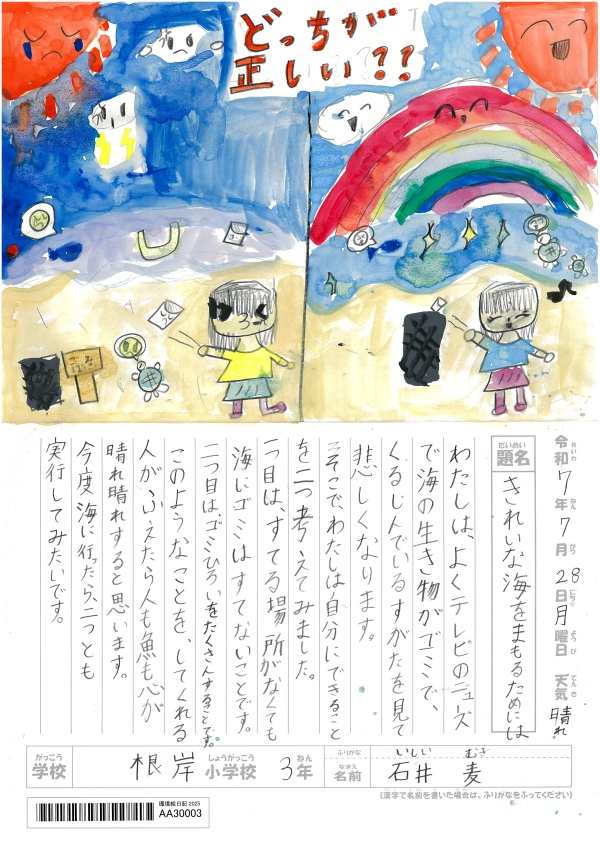 どっちが
正しい??
ごみ
ばこ
令和7年7月28日月曜日 天気 晴れ
れいわ ねん がつ にち ようび てんき
だいめい
題名 きれいな海をまもるためには
わたしは、よくテレビのニュース
で海の生き物がゴミで、
くるしんでいるすがたを見て
悲しくなります。
そこで、わたしは自分にできること
を二つ考えてみました。
一つ目は、すてる場所がなくても
海にゴミはすてないことです。
二つ目は、ゴミひろいをたくさんすることです。
このようなことを、してくれる
人がふえたら人も魚も心が
晴れ晴れすると思います。
今度海に行ったら、二つとも
実行してみたいです。
がっこう しょうがっこう ねん ふりがな いしい むぎ
学校 根岸小学校 3年 なまえ 名前 石井 麦
(漢字で名前を書いた場合は、ふりがなをふってください)
環境絵日記 2025
AA30003